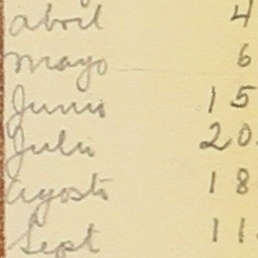 abril 4
mayo 6
Junio 15
Julio 20.
agosto 18
Sept 11.